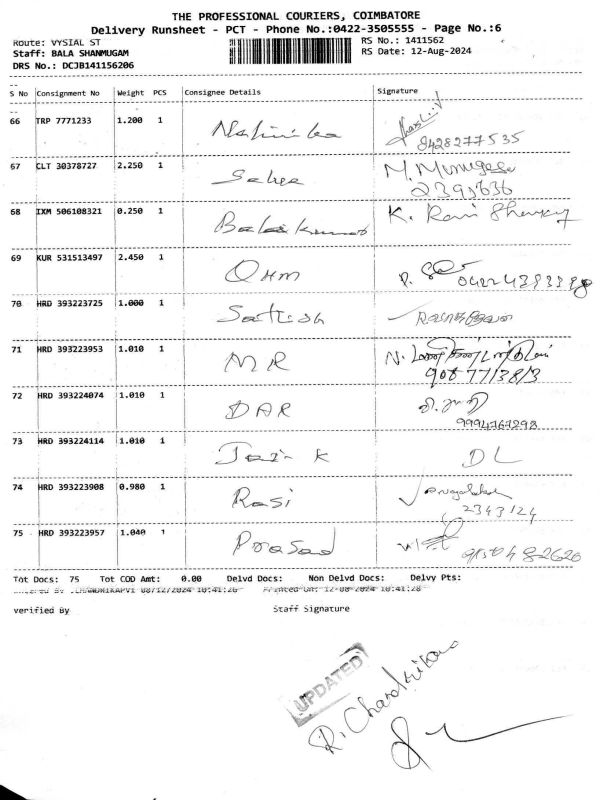 THE PROFESSIONAL COURIERS, COIMBATORE
Delivery Runsheet - PCT - Phone No.:0422-3505555 - Page No.:6
Route: VYSIAL ST RS No.: 1411562
Staff: BALA SHANMUGAM RS Date: 12-Aug-2024
DRS No.: DCJB141156206
S No Consignment No Weight PCS Consignee Details Signature
66 TRP 7771233 1.200 1
8428277535
67 CLT 30378727 2.250 1
M. Murugesa
2395636
68 IXM 506108321 0.250 1 Balakumar K. Ravi
69 KUR 531513497 2.450 1 OHM
70 HRD 393223725 1.000 1 Satish
71 HRD 393223953 1.010 1 MR
72 HRD 393224074 1.010 1 DAR
9994767298
73 HRD 393224114 1.010 1 Jain K DL
74 HRD 393223908 0.980 1 Rasi
2343124
75 HRD 393223957 1.040 1 Prasad
Tot Docs: 75 Tot COD Amt: 0.00 Delvd Docs: Non Delvd Docs: Delvy Pts:
verified By Staff Signature
UPDATED
R. Chandrika